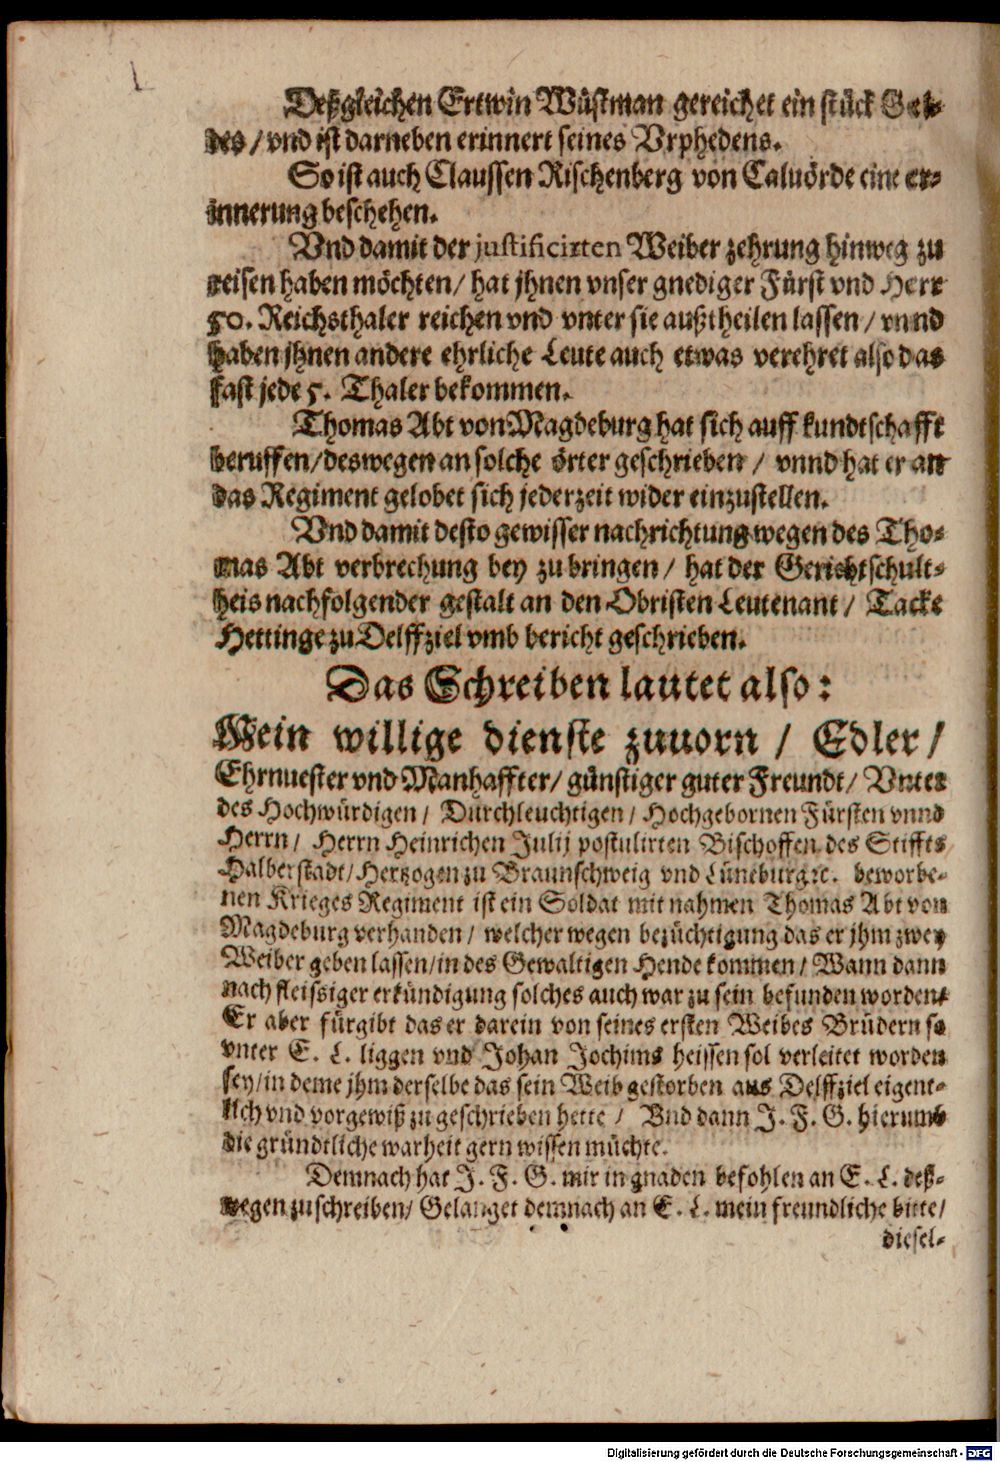 Deßgleichen Ertwin Wüstman gereichet ein stück Gel-
des / vnd ist darneben erinnert seines Vrphedens.
So ist auch Claussen Rischenberg von Caluörde eine er-
innerung beschehen.
Vnd damit der justificirten Weiber zehrung hinweg zu
reisen haben möchten / hat jhnen vnser gnediger Fürst vnd Herr
50. Reichsthaler reichen vnd vnter sie außtheilen lassen / vnnd
haben jhnen andere ehrliche Leute auch etwas verehret also das
fast jede 5. Thaler bekommen.
Thomas Abt von Magdeburg hat sich auff kundtschafft
beruffen / deswegen an solche örter geschrieben / vnnd hat er an
das Regiment gelobet sich jederzeit wider einzustellen.
Vnd damit desto gewisser nachrichtung wegen des Tho-
mas Abt verbrechung bey zu bringen / hat der Gerichtschult-
heis nachfolgender gestalt an den Obristen Leutenant / Tacke
Hettinge zu Delffziel vmb bericht geschrieben.
Das Schreiben lautet also:
Mein willige dienste zuuorn / Edler /
Ehrnuester vnd Manhaffter / günstiger guter Freundt / Vnter
des Hochwürdigen / Durchleuchtigen / Hochgebornen Fürsten vnnd
Herrn / Herrn Heinrichen Julij postulirten Bischoffen des Stiffts
Halberstadt / Hertzogen zu Braunschweig vnd Lüneburg ꝛc. beworbe-
nen Krieges Regiment ist ein Soldat mit nahmen Thomas Abt von
Magdeburg verhanden / welcher wegen bezüchtigung das er jhm zwey
Weiber geben lassen / in des Gewaltigen Hende kommen / Wann dann
nach fleissiger erkündigung solches auch war zu sein befunden worden /
Er aber fürgibt das er darein von seines ersten Weibes Brüdern so
vnter E. L. liggen vnd Johan Jochims heissen sol verleitet worden
sey / in deme jhm derselbe das sein Weib gestorben aus Delffziel eigent-
lich vnd vorgewiß zu geschrieben hette / Vnd dann J. F. G. hierumb
die gründtliche warheit gern wissen müchte.
Demnach hat J. F. G. mir in gnaden befohlen an E. L. deß-
wegen zu schreiben / Gelanget demnach an E. L. mein freundliche bitte /
diesel-
Digitalisierung gefördert durch die Deutsche Forschungsgemeinschaft - DFG